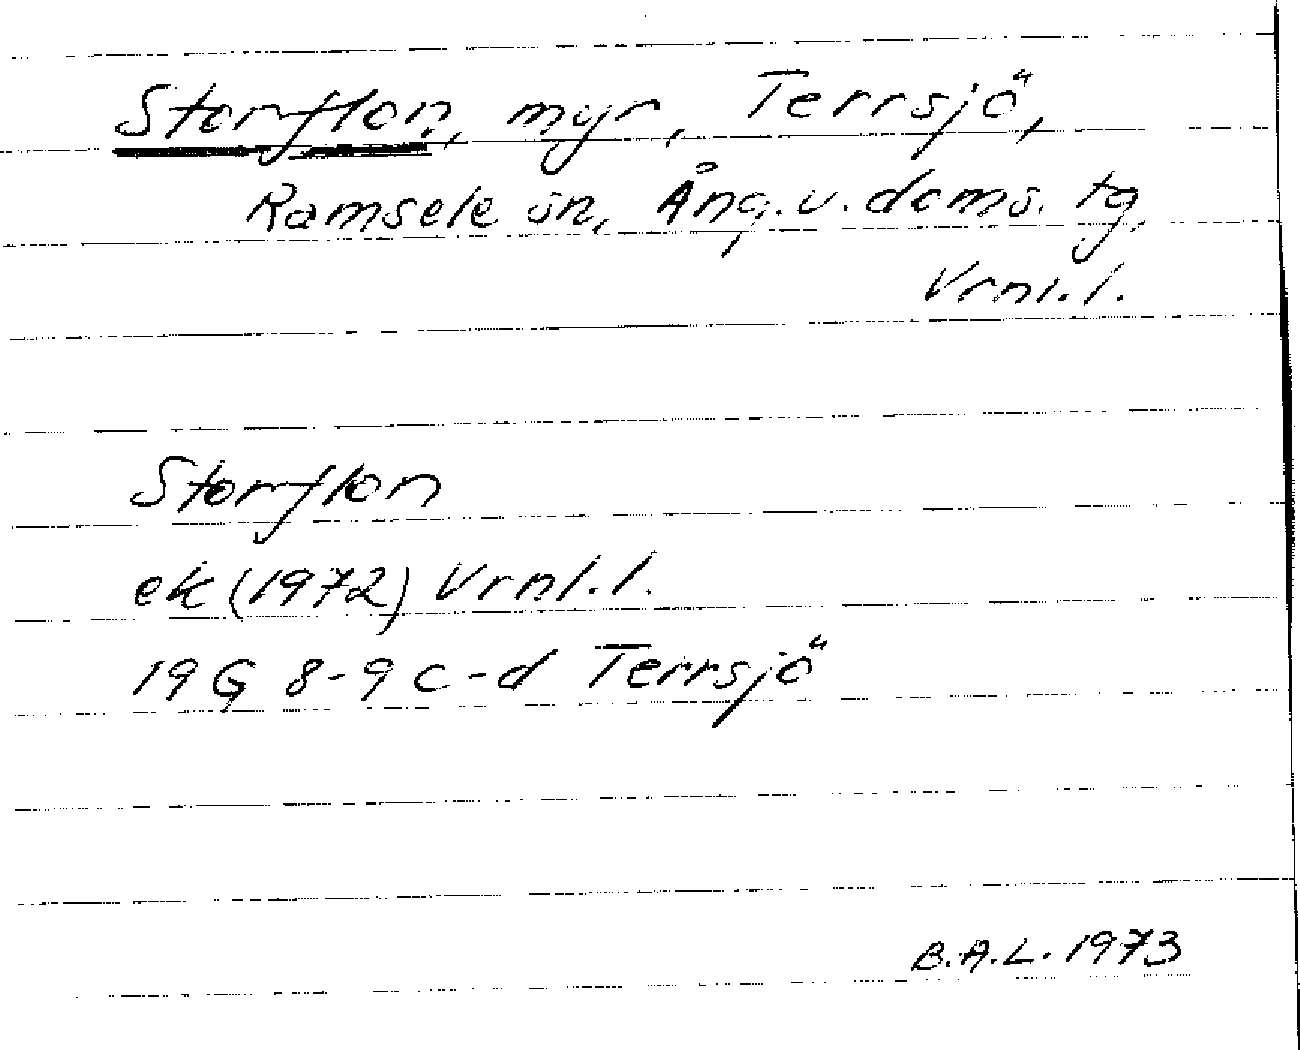 Storflon, myr, Terrsjö,
Ramsele sn, Ång. v. doms. tg,
Vrnl. l.
Storflon
ek (1972) Vrnl. l.
19 G 8-9 c-d Terrsjö
B.A.L. 1973